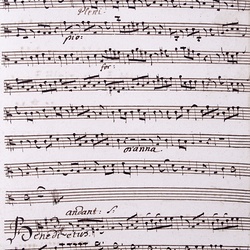 pleni
pio:
for:
osanna
andant: f:
Benedictus